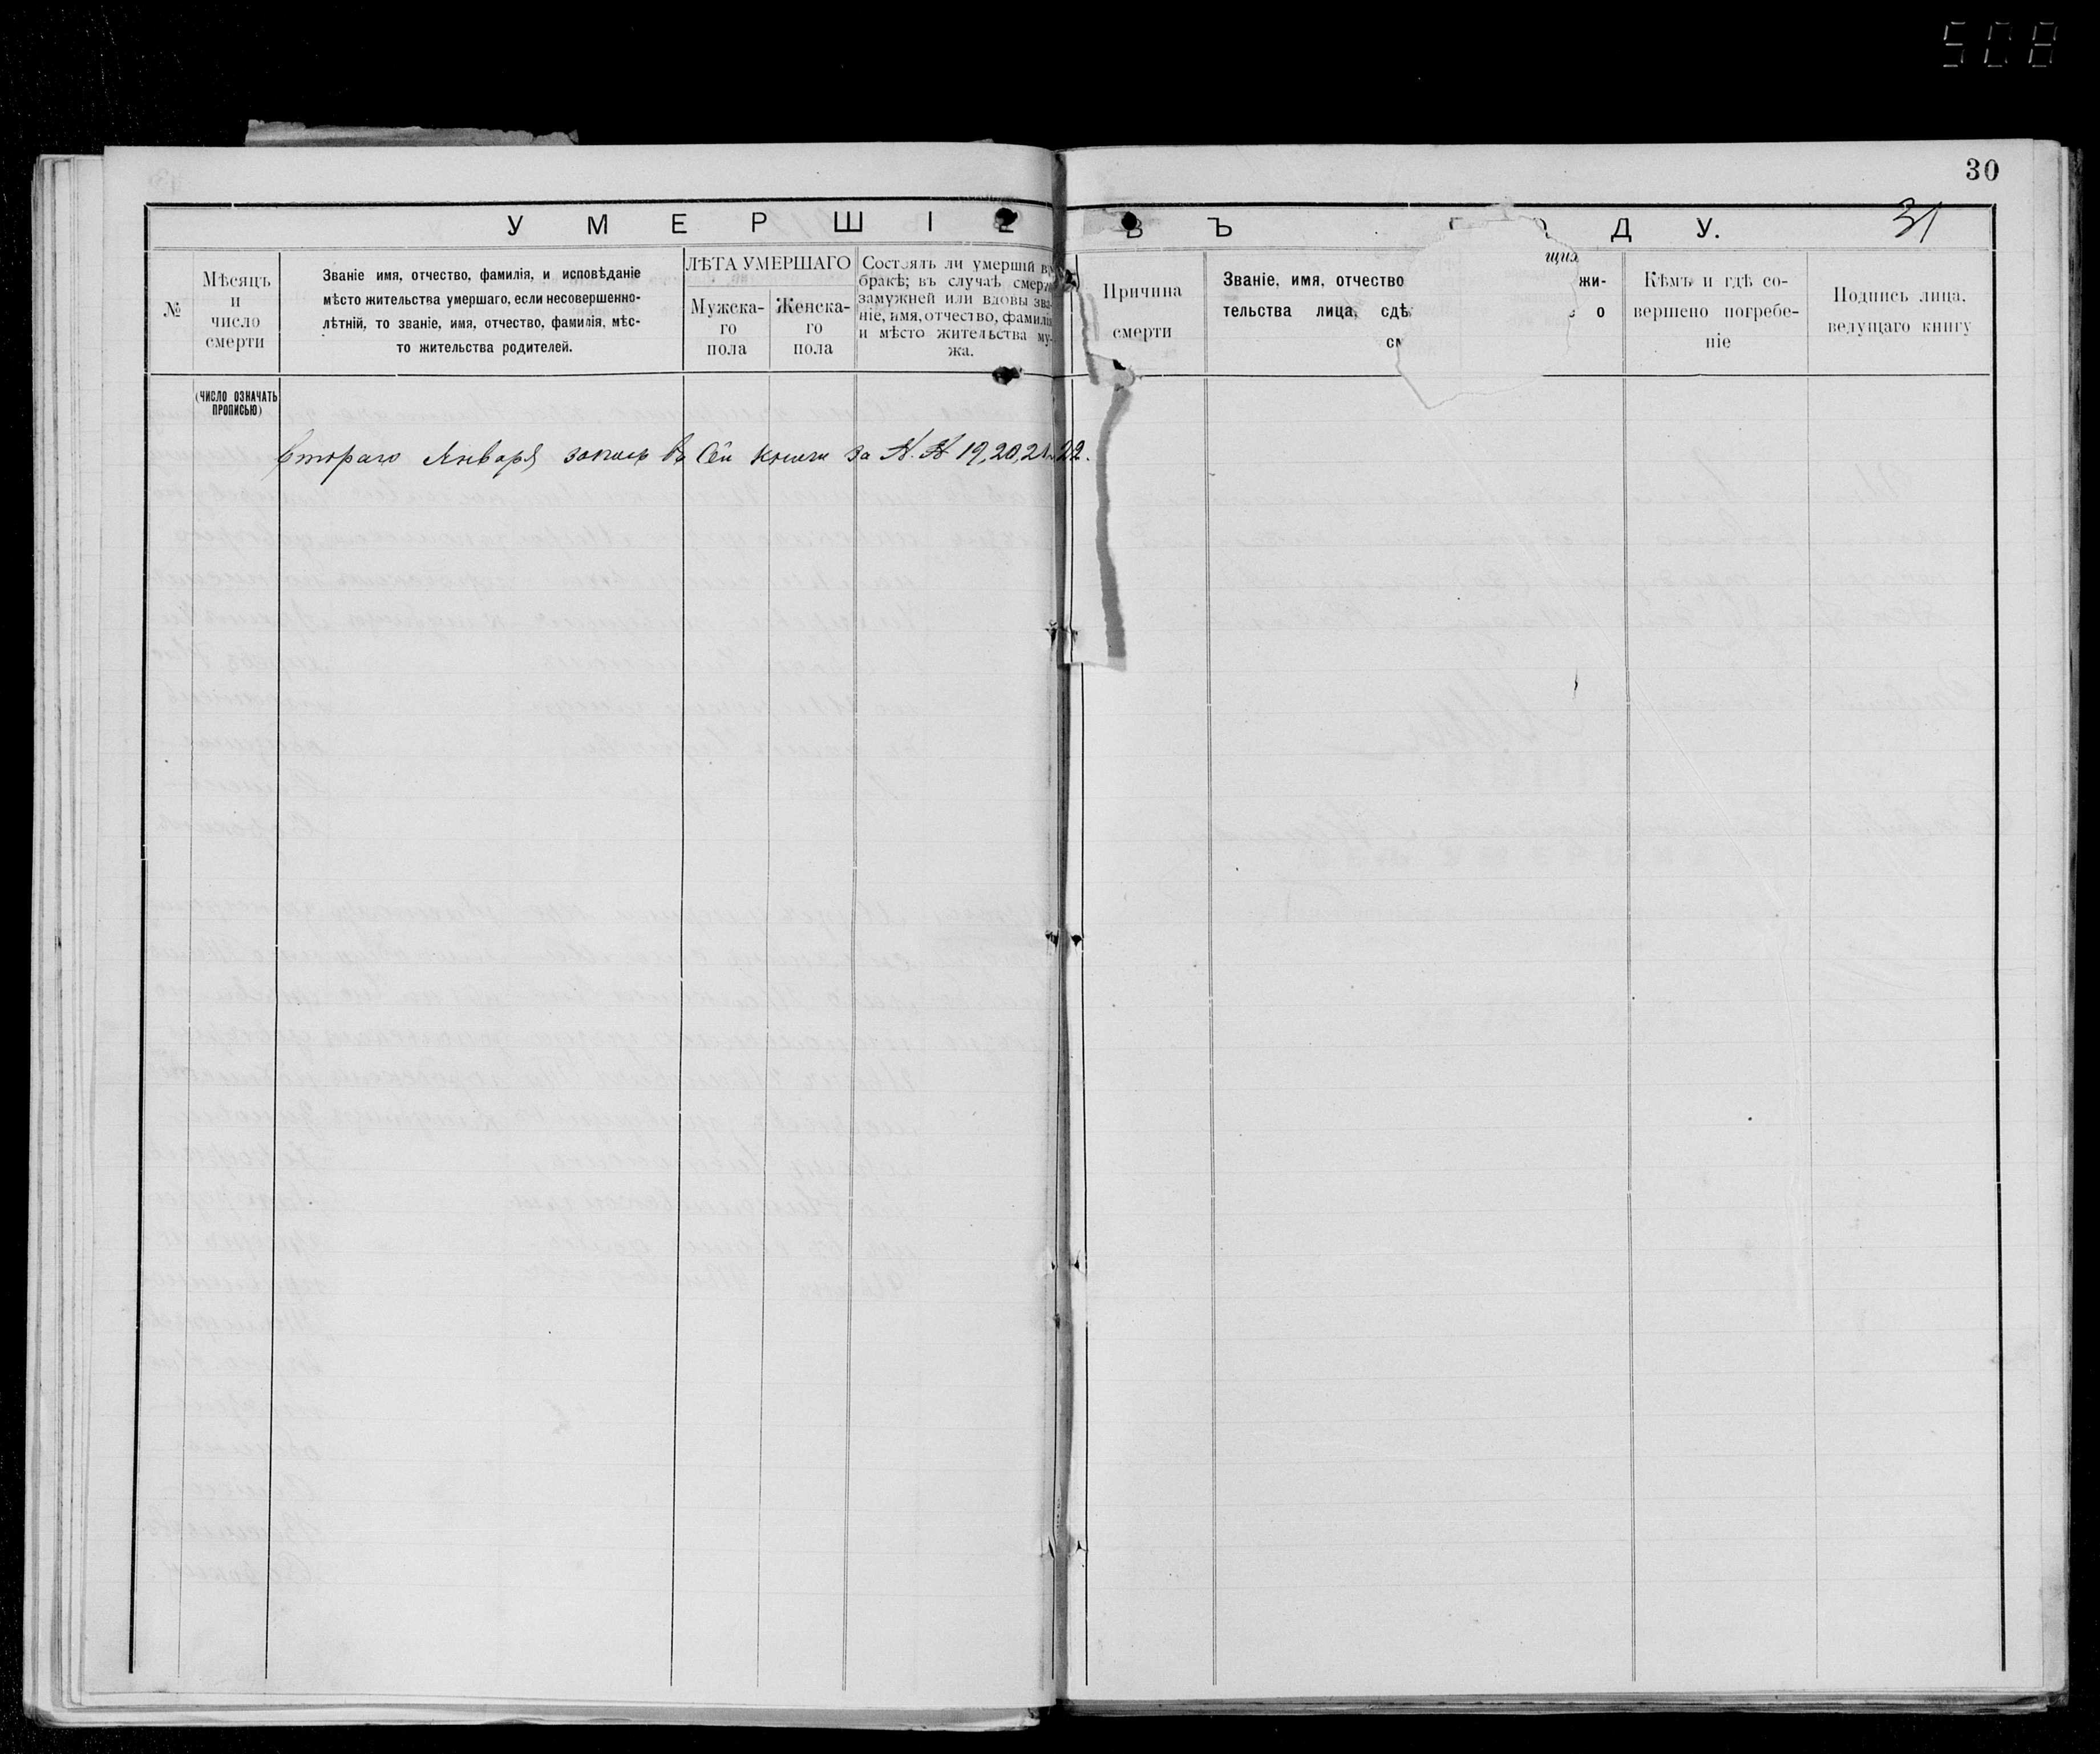 508
30
31
УМЕРШІЕ
ВЪ ДУ.
№
Мѣсяцъ
и
число
смерти
Званіе имя, отчество, фамилія, и исповѣданіе
мѣсто жительства умершаго, если несовершенно-
лѣтній, то званіе, имя, отчество, фамилія, мѣс-
то жительства родителей.
ЛѢТА УМЕРШАГО
Мужска-
го
пола
Женска-
го
пола
Состоялъ ли умершій въ
бракѣ; въ случаѣ смерти
замужней или вдовы зва-
ніе, имя, отчество, фамилія
и мѣсто жительства му-
жа.
Причина
смерти
Званіе, имя, отчество щия жи-
тельства лица, сдѣ о
см
Кѣмъ и гдѣ со-
вершено погребе-
ніе
Подпись лица,
ведущаго книгу
(ЧИСЛО ОЗНАЧАТЬ
ПРОПИСЬЮ)
Втораго Января въ сей книги за №.№ 19, 20, 21, 22.